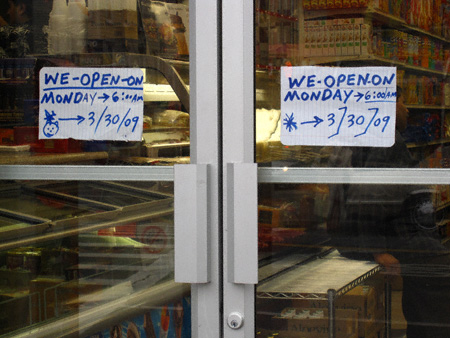 WE-OPEN-ON
MONDAY→6:00AM
→3/30/09
WE-OPEN-ON
MONDAY→6:00/AM
*→3/30/09